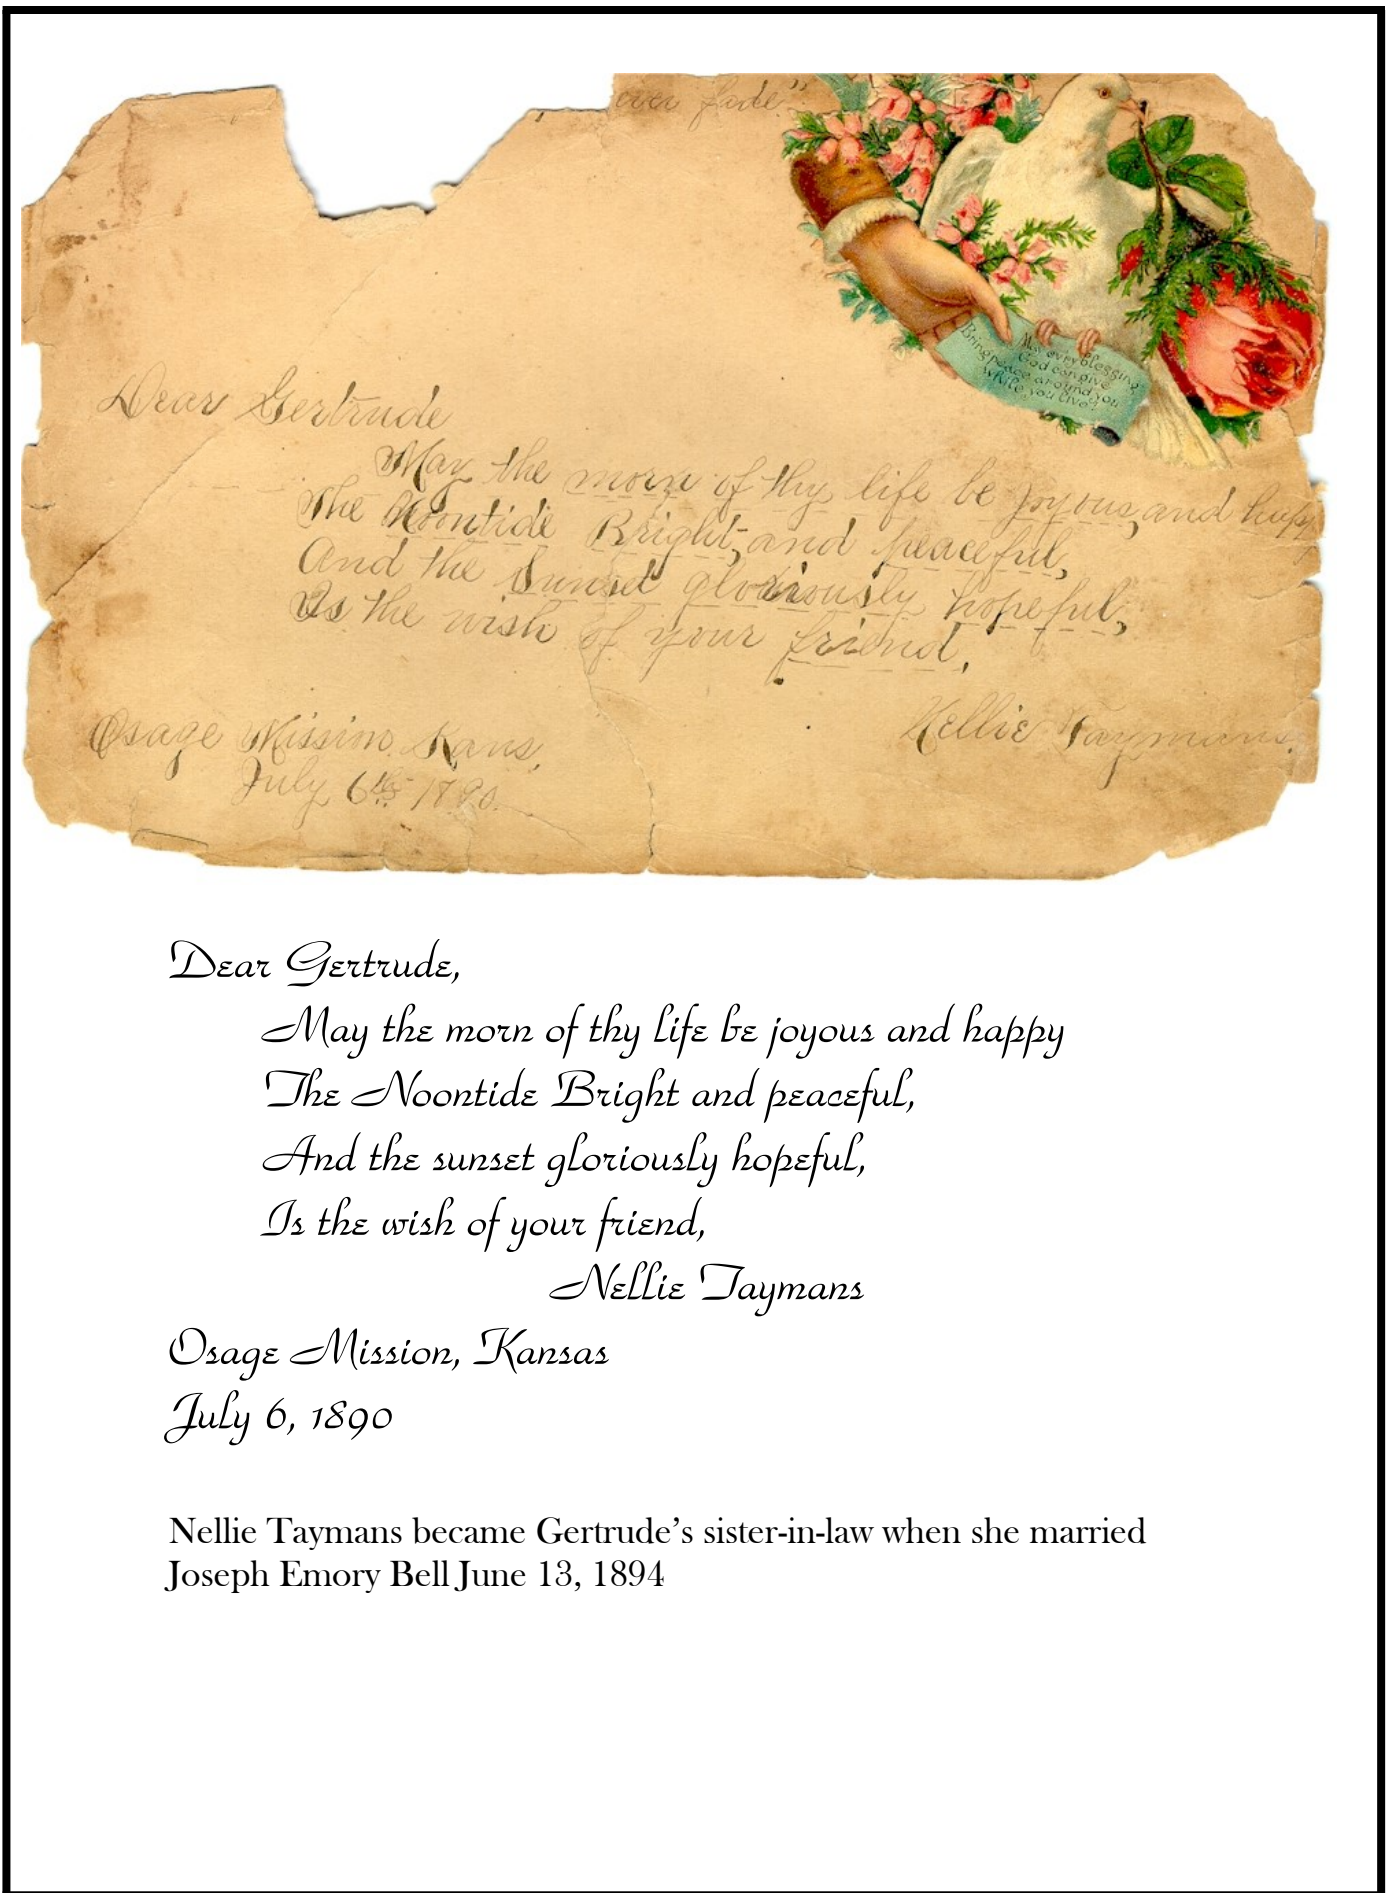 ever fade"
May every blessing
God can give
Bring peace around you
While you live
Dear Gertrude
May the morn of thy life be joyous, and happy
The Noontide Bright, and peaceful,
And the Sunset gloriously hopeful,
Is the wish of your friend,
Nellie Taymans.
Osage Mission Kans,
July 6th 1890.
Dear Gertrude,
May the morn of thy life be joyous and happy
The Noontide Bright and peaceful,
And the sunset gloriously hopeful,
Is the wish of your friend,
Nellie Taymans
Osage Mission, Kansas
July 6, 1890
Nellie Taymans became Gertrude’s sister-in-law when she married
Joseph Emory Bell June 13, 1894